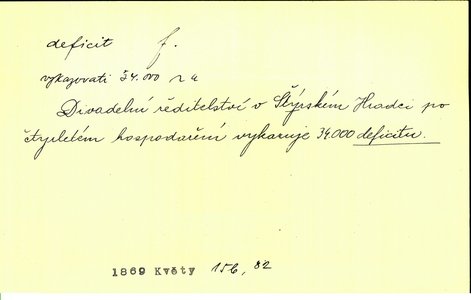 deficit f.
vykazovati 34.000 z u
Divadelní ředitelství v Štýrském Hradci po
čtyrletém hospodaření vykazuje 34.000 deficitu.
1869 Květy 156, 82